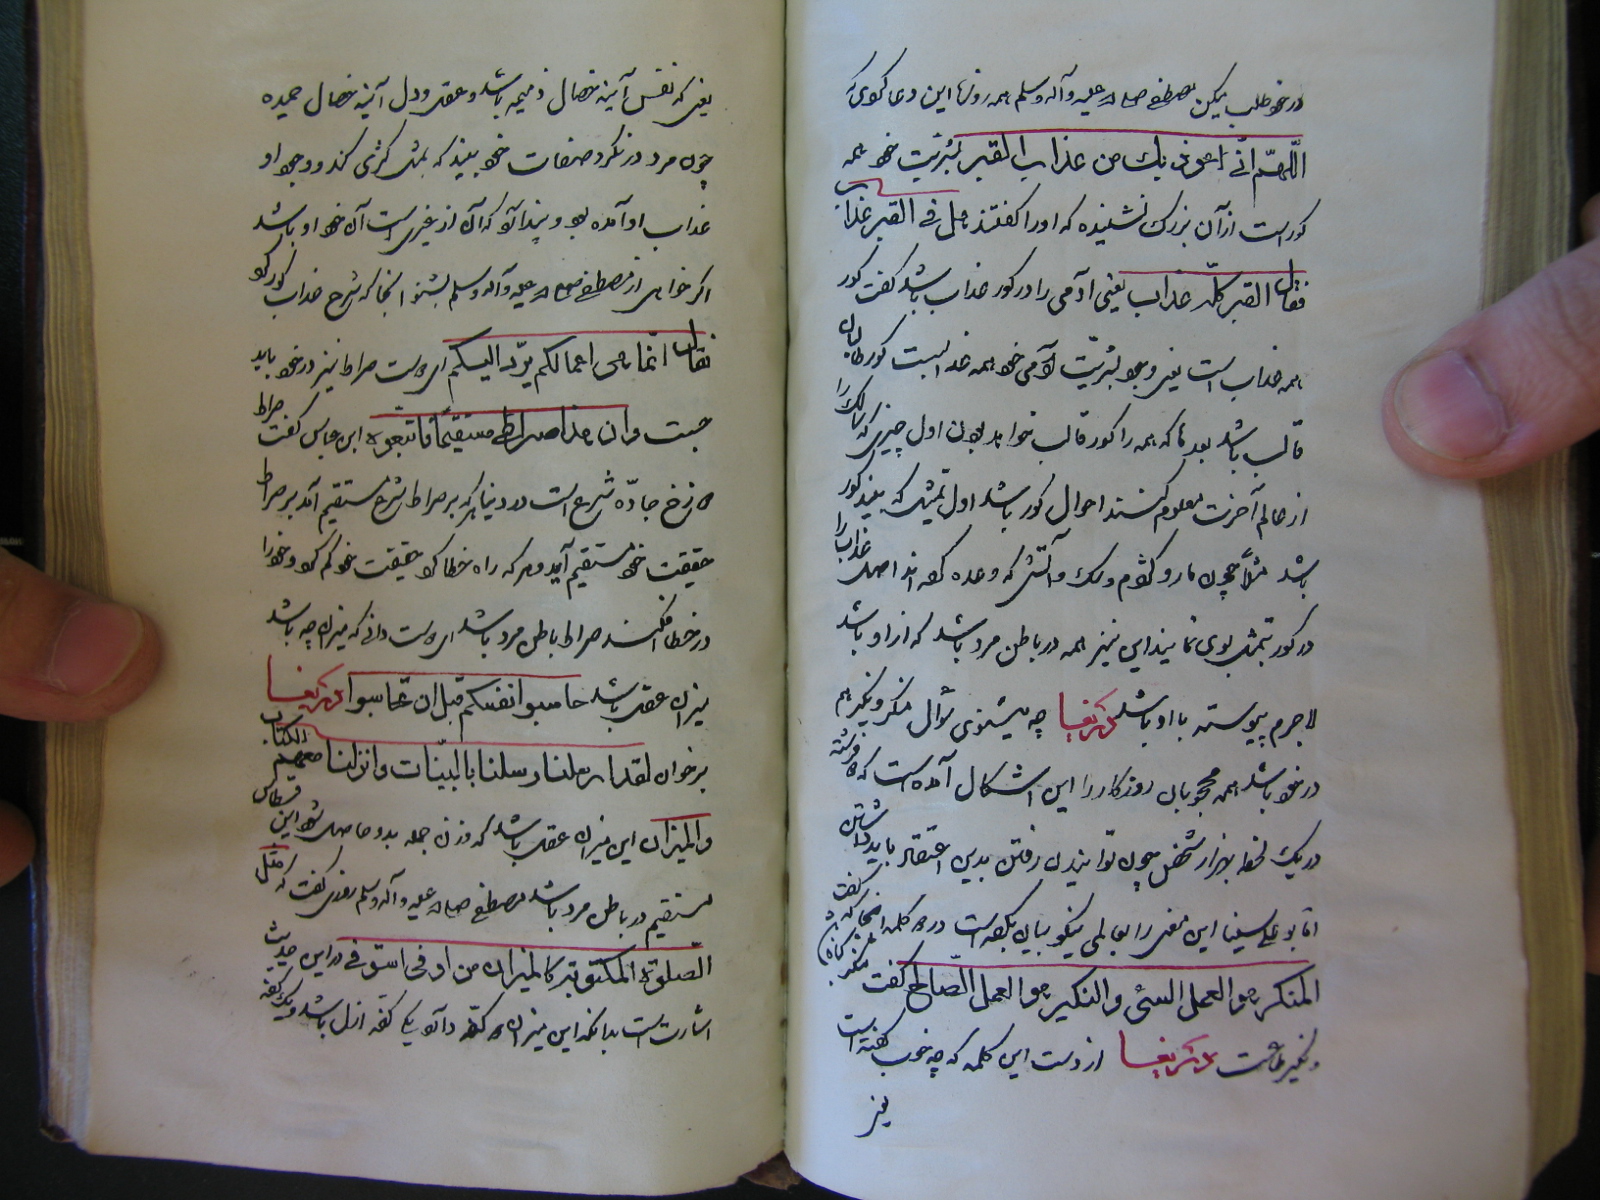 در خود طلب میکن مصطفی صلی الله علیه وآله وسلم همه روزها این دعا کردی که
اللّهمّ انّی اعوذ بك من عذاب القبر بشریّت خود همه
کور است از آن بزرك نشنیده که اورا کفتند مل فی القبر عذاب
فقال القبر کلّه عذاب یعنی آدمی را در کور عذاب باشد کفت کور
همه عذاب است یعنی وجود بشریّت آدمی خود همه عذابست کور طالبان
قالب باشد بعد ما که همه را کور قالب خواهد بودن اول چیزی که سالك را
از عالم آخرت معلوم کنند احوال کور باشد اول تمثل که بیند کور
باشد مثلاً چون مار و کژدم و سك و آتش که وعده کرده اند اهل عذاب را
در کور بتمثل بوی نمایند این نیز همه در باطن مرد باشد که از او باشد
لاجرم پیوسته با او باشد ای عزیز چه میشنوی سؤال منکر و نکیر هم
در خود باشد همه محجوبان روزکار را این اشکال آمده است که دو فرشته
در یك لحظه بهزار شخص چون توانند رفتن بدین اعتقاد باید داشتن
امّا بو علی سینا این معنی را بعالمی نیکو بیان بکرده است در دو کلمه آنجا که کفت
المنکر هو العمل السیّئ والنکیر هو العمل الصّالح کفت منکر کناه
و نکیر طاعت از دست این کلمه که چه خوب کفته است
یعنی
یعنی که نفس آینه خصال ذمیمه باشد و عقل و دل آینه خصال حمیده
چون مرد در نکرد صفات خود بیند که بتمثل کری کند و وجود او
عذاب او آمده بود و پندارد که آن از غیری است آن خود او باشد
اکر خواهی از مصطفی صلی الله علیه وآله وسلم بشنو آنجا که شرح عذاب کور کرد
فقال انّما هی اعمالکم یردّ الیکم ای دوست صراط نیز در خود باید
جست وانّ هذا صراطی مستقیماً فاتّبعوه ابن عباس کفت صراط
جادّه شرع است در دنیا هرکه بر صراط شرع مستقیم آمد بر صراط
حقیقت خود مستقیم آید و هرکه راه خطا کرد حقیقت خود کم کرد و خود را
در خطا افکند صراط باطن مرد باشد ای دوست دانی که میزان چه باشد
میزان عقل باشد حاسبوا انفسکم قبل ان تحاسبوا
برخوان لقد ارسلنا رسلنا بالبیّنات وانزلنا معهم الکتاب
والمیزان این میزان عقل باشد که وزن جمله بدو حاصل شود این قسطاس
مستقیم در باطن مرد باشد مصطفی صلی الله علیه وآله وسلم روزی کفت که مثل
الصّلوة المکتوبة کالمیزان من اوفی استوفی در این حدیث
اشارت است بدانکه این میزان دو کفّه دارد یکی کفّه ازل باشد و یك کفّه